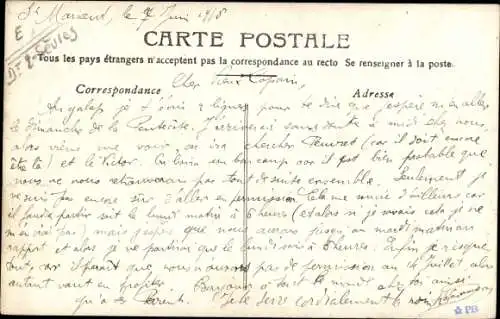 St Maixent, le 7 Juin 1918
E
Dt 2 Sèvres
CARTE POSTALE
Tous les pays étrangers n'acceptent pas la correspondance au recto Se renseigner à la poste.
Correspondance Adresse
Cher vieux Copain,
Au galop je 2 lignes pour te dire que j'espère m'en aller
le Dimanche de la Pentecôte. J'arriverai sans doute à midi chez nous
alors viens me voir on ira chercher (car il doit encore
être là) et le Victor. On beaucoup car il est bien probable que
nous ne nous retrouverons pas tout de suite ensemble. Seulement je
ne suis pas encore sûr d'aller en permission. Cela me d'ailleurs car
il faudra partir soit le lundi matin à 6 heures (et alors si je vois cela je ne
m'en irai pas) mais j'espère que nous aurons jusqu'au mardi matin au
rapport et alors je ne partirai que le lundi soir à 6 heures. Enfin je risque
tout, car il paraît que nous n'aurons pas de permission au 14 Juillet alors
autant vaut en profiter. Bonjour à tout le monde chez toi ainsi
qu'à tes Parents. Je te serre cordialement la main
PB